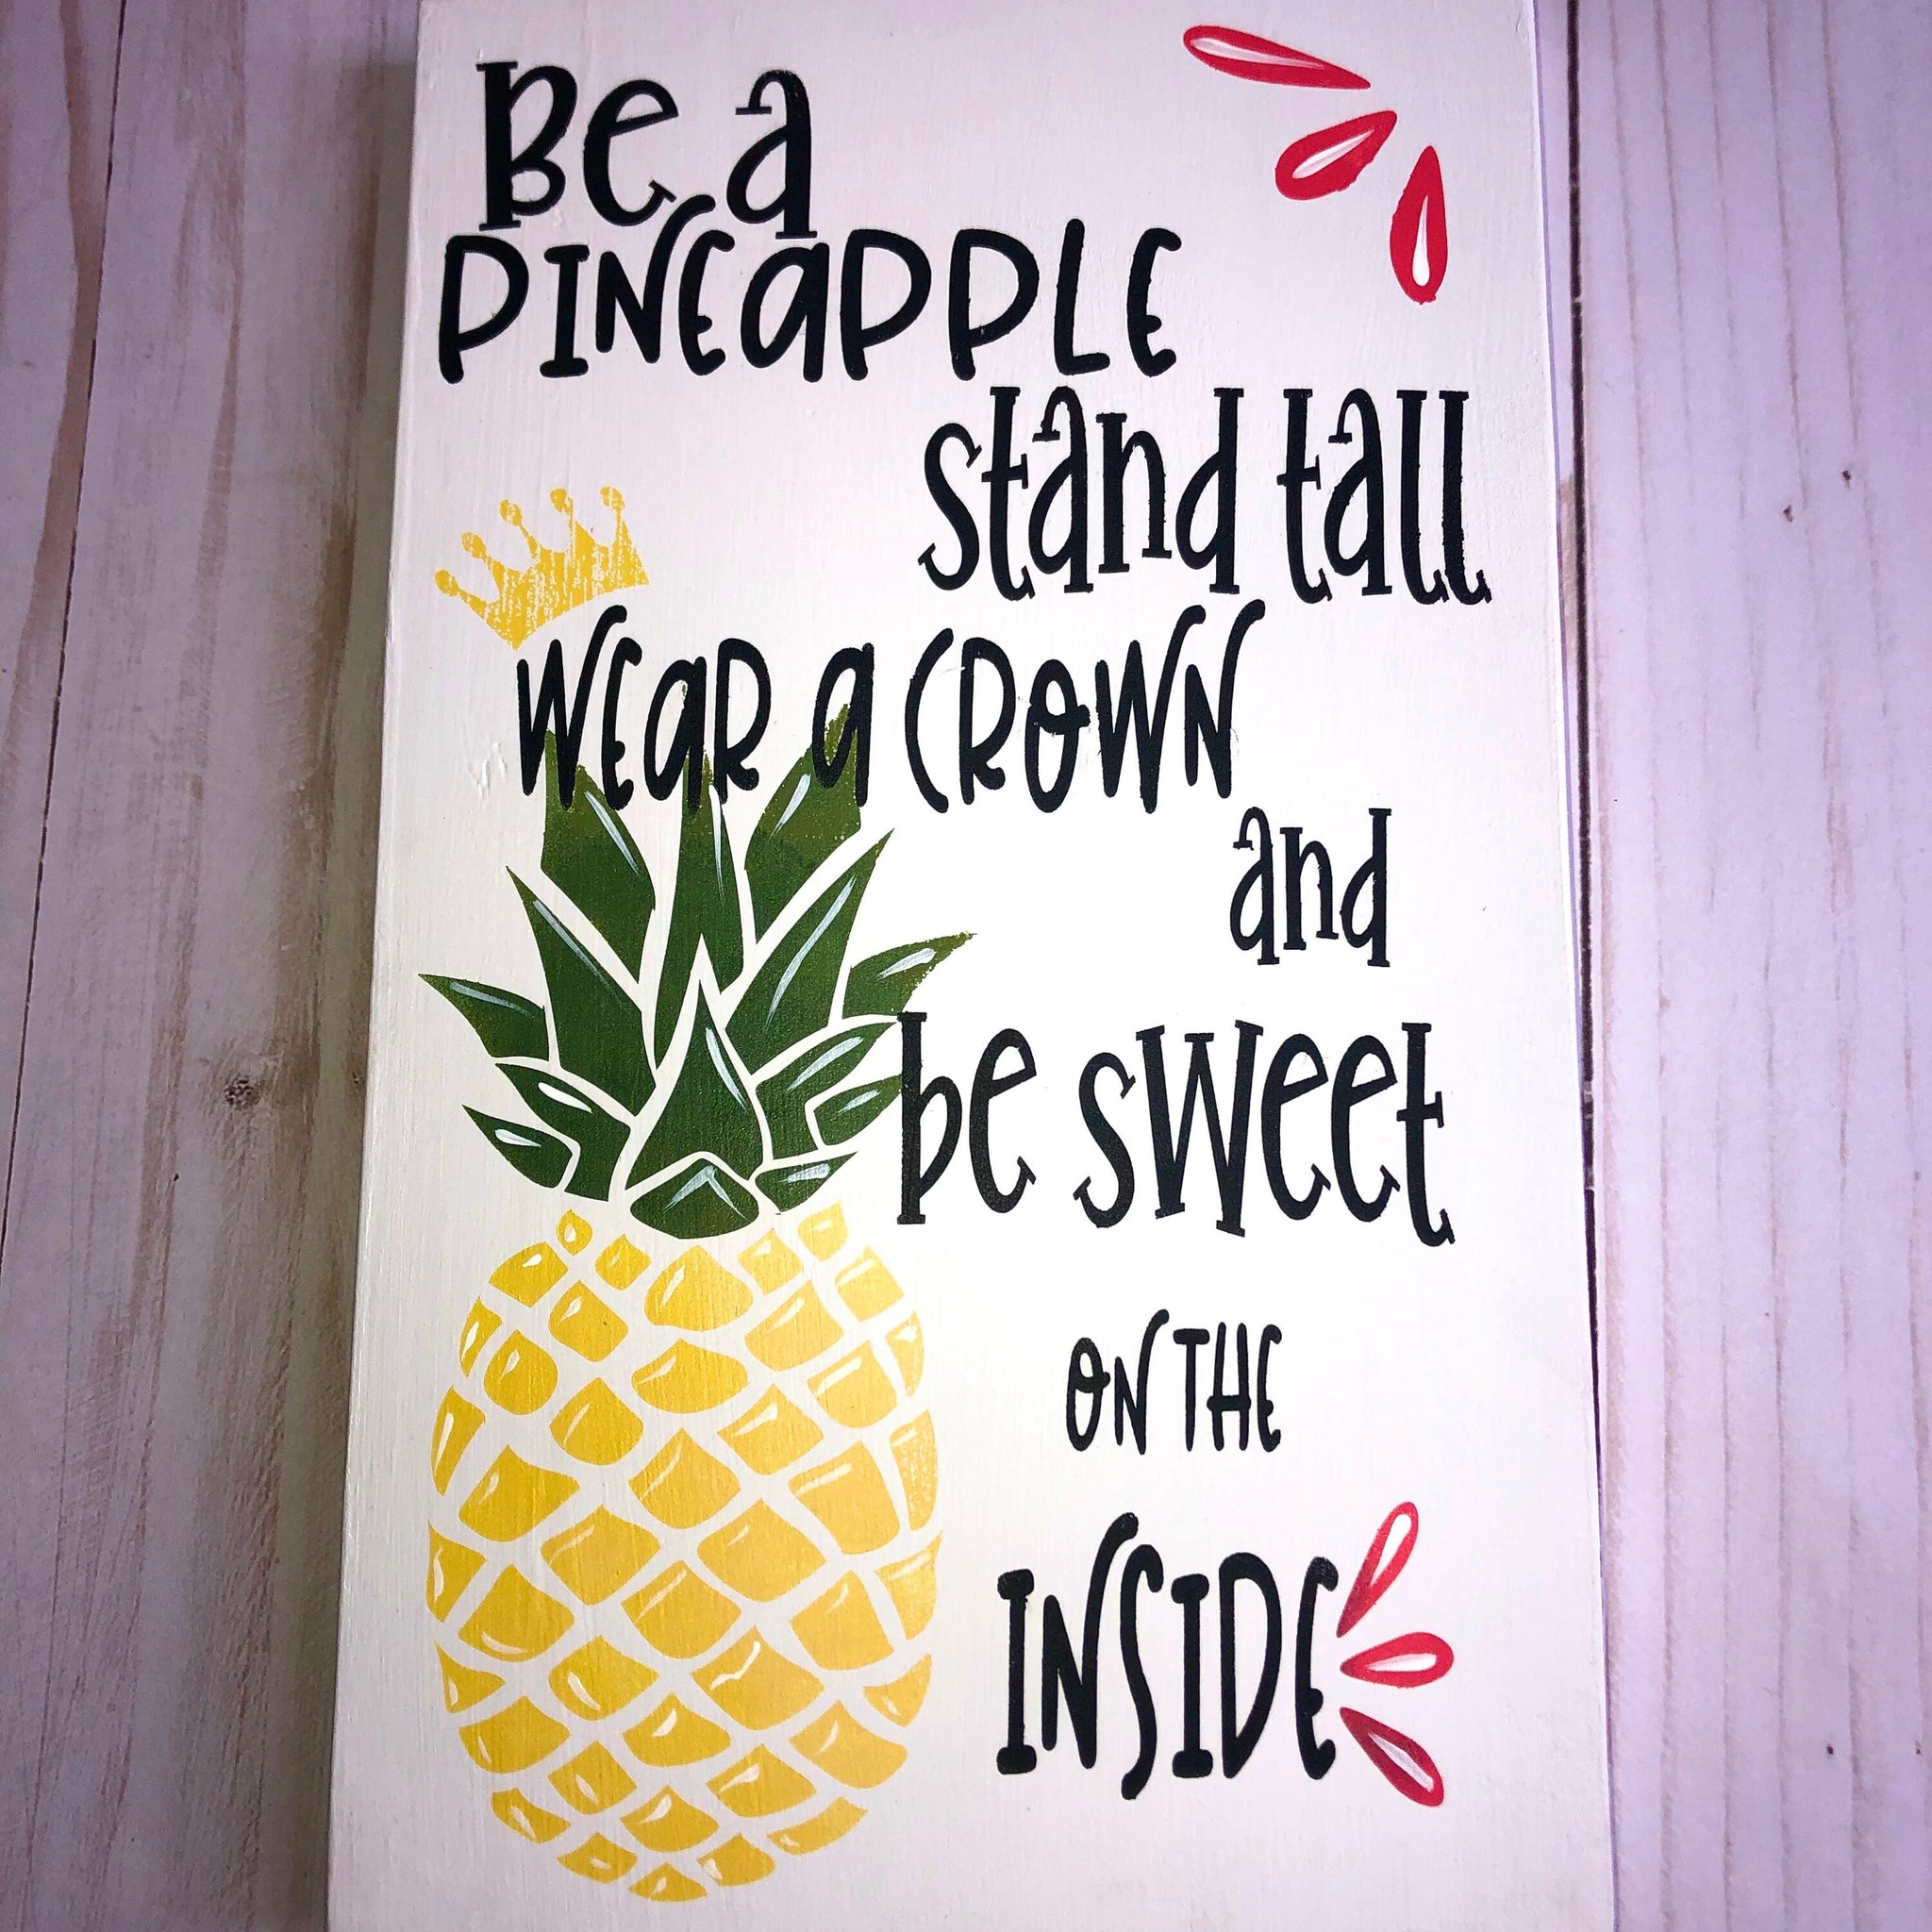 Be a
PINEaPPLE
stand tall
WEaR a CROWN
and
be sweet
ON THE
INSIDE